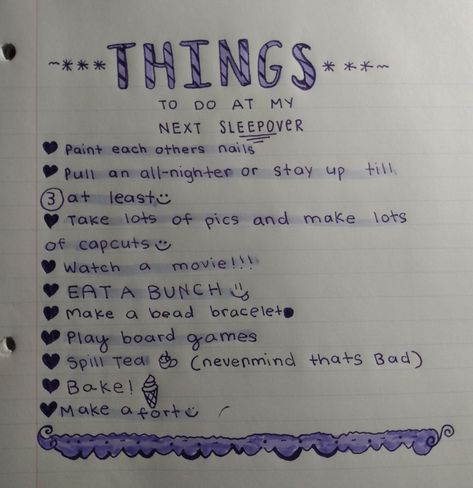 ~***THINGS***~
TO DO AT MY
NEXT SLEEPOVER
♥ Paint each others nails
♥ Pull an all-nighter or stay up till
③ at least☺
♥ Take lots of pics and make lots
of capcuts☺
♥ Watch a movie!!!
♥ EAT A BUNCH☺
♥ Make a bead bracelet
♥ Play board games
♥ Spill Tea (nevenmind thats Bad)
♥ Bake!
♥ Make a fort☺